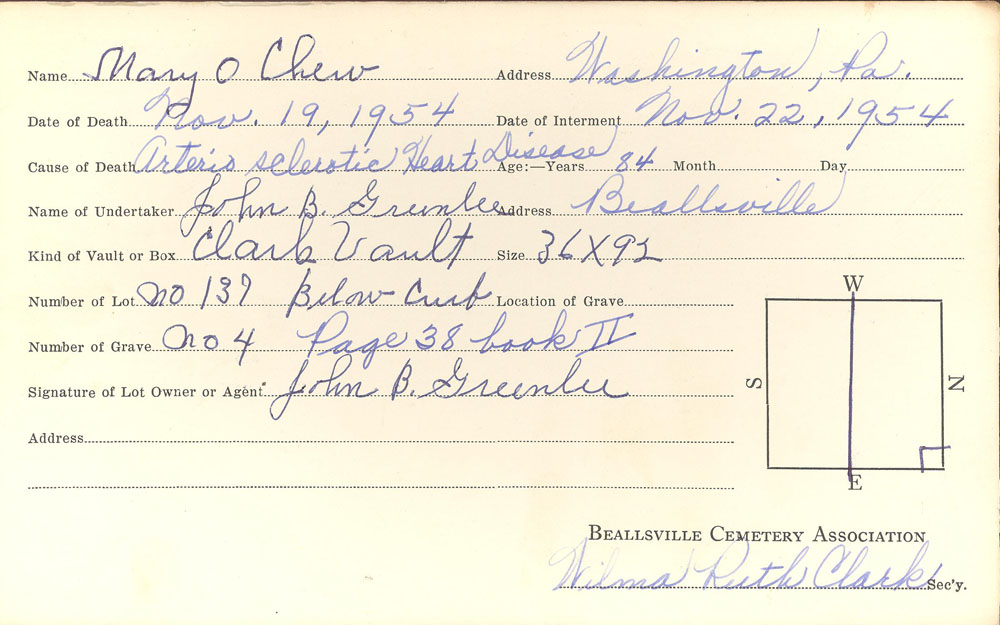 Name Mary O Chew Address Washington, Pa.
Date of Death Nov. 19, 1954 Date of Interment Nov. 22, 1954
Cause of Death Arterio sclerotic Heart Disease Age:—Years 84 Month Day
Name of Undertaker John B. Greenlee Address Beallsville
Kind of Vault or Box Clark Vault Size 36X92
Number of Lot no 137 Below Curb Location of Grave
W
Number of Grave no 4 Page 38 book II
S N
Signature of Lot Owner or Agent John B. Greenlee
Address
E
BEALLSVILLE CEMETERY ASSOCIATION
Wilma Ruth Clark Sec'y.